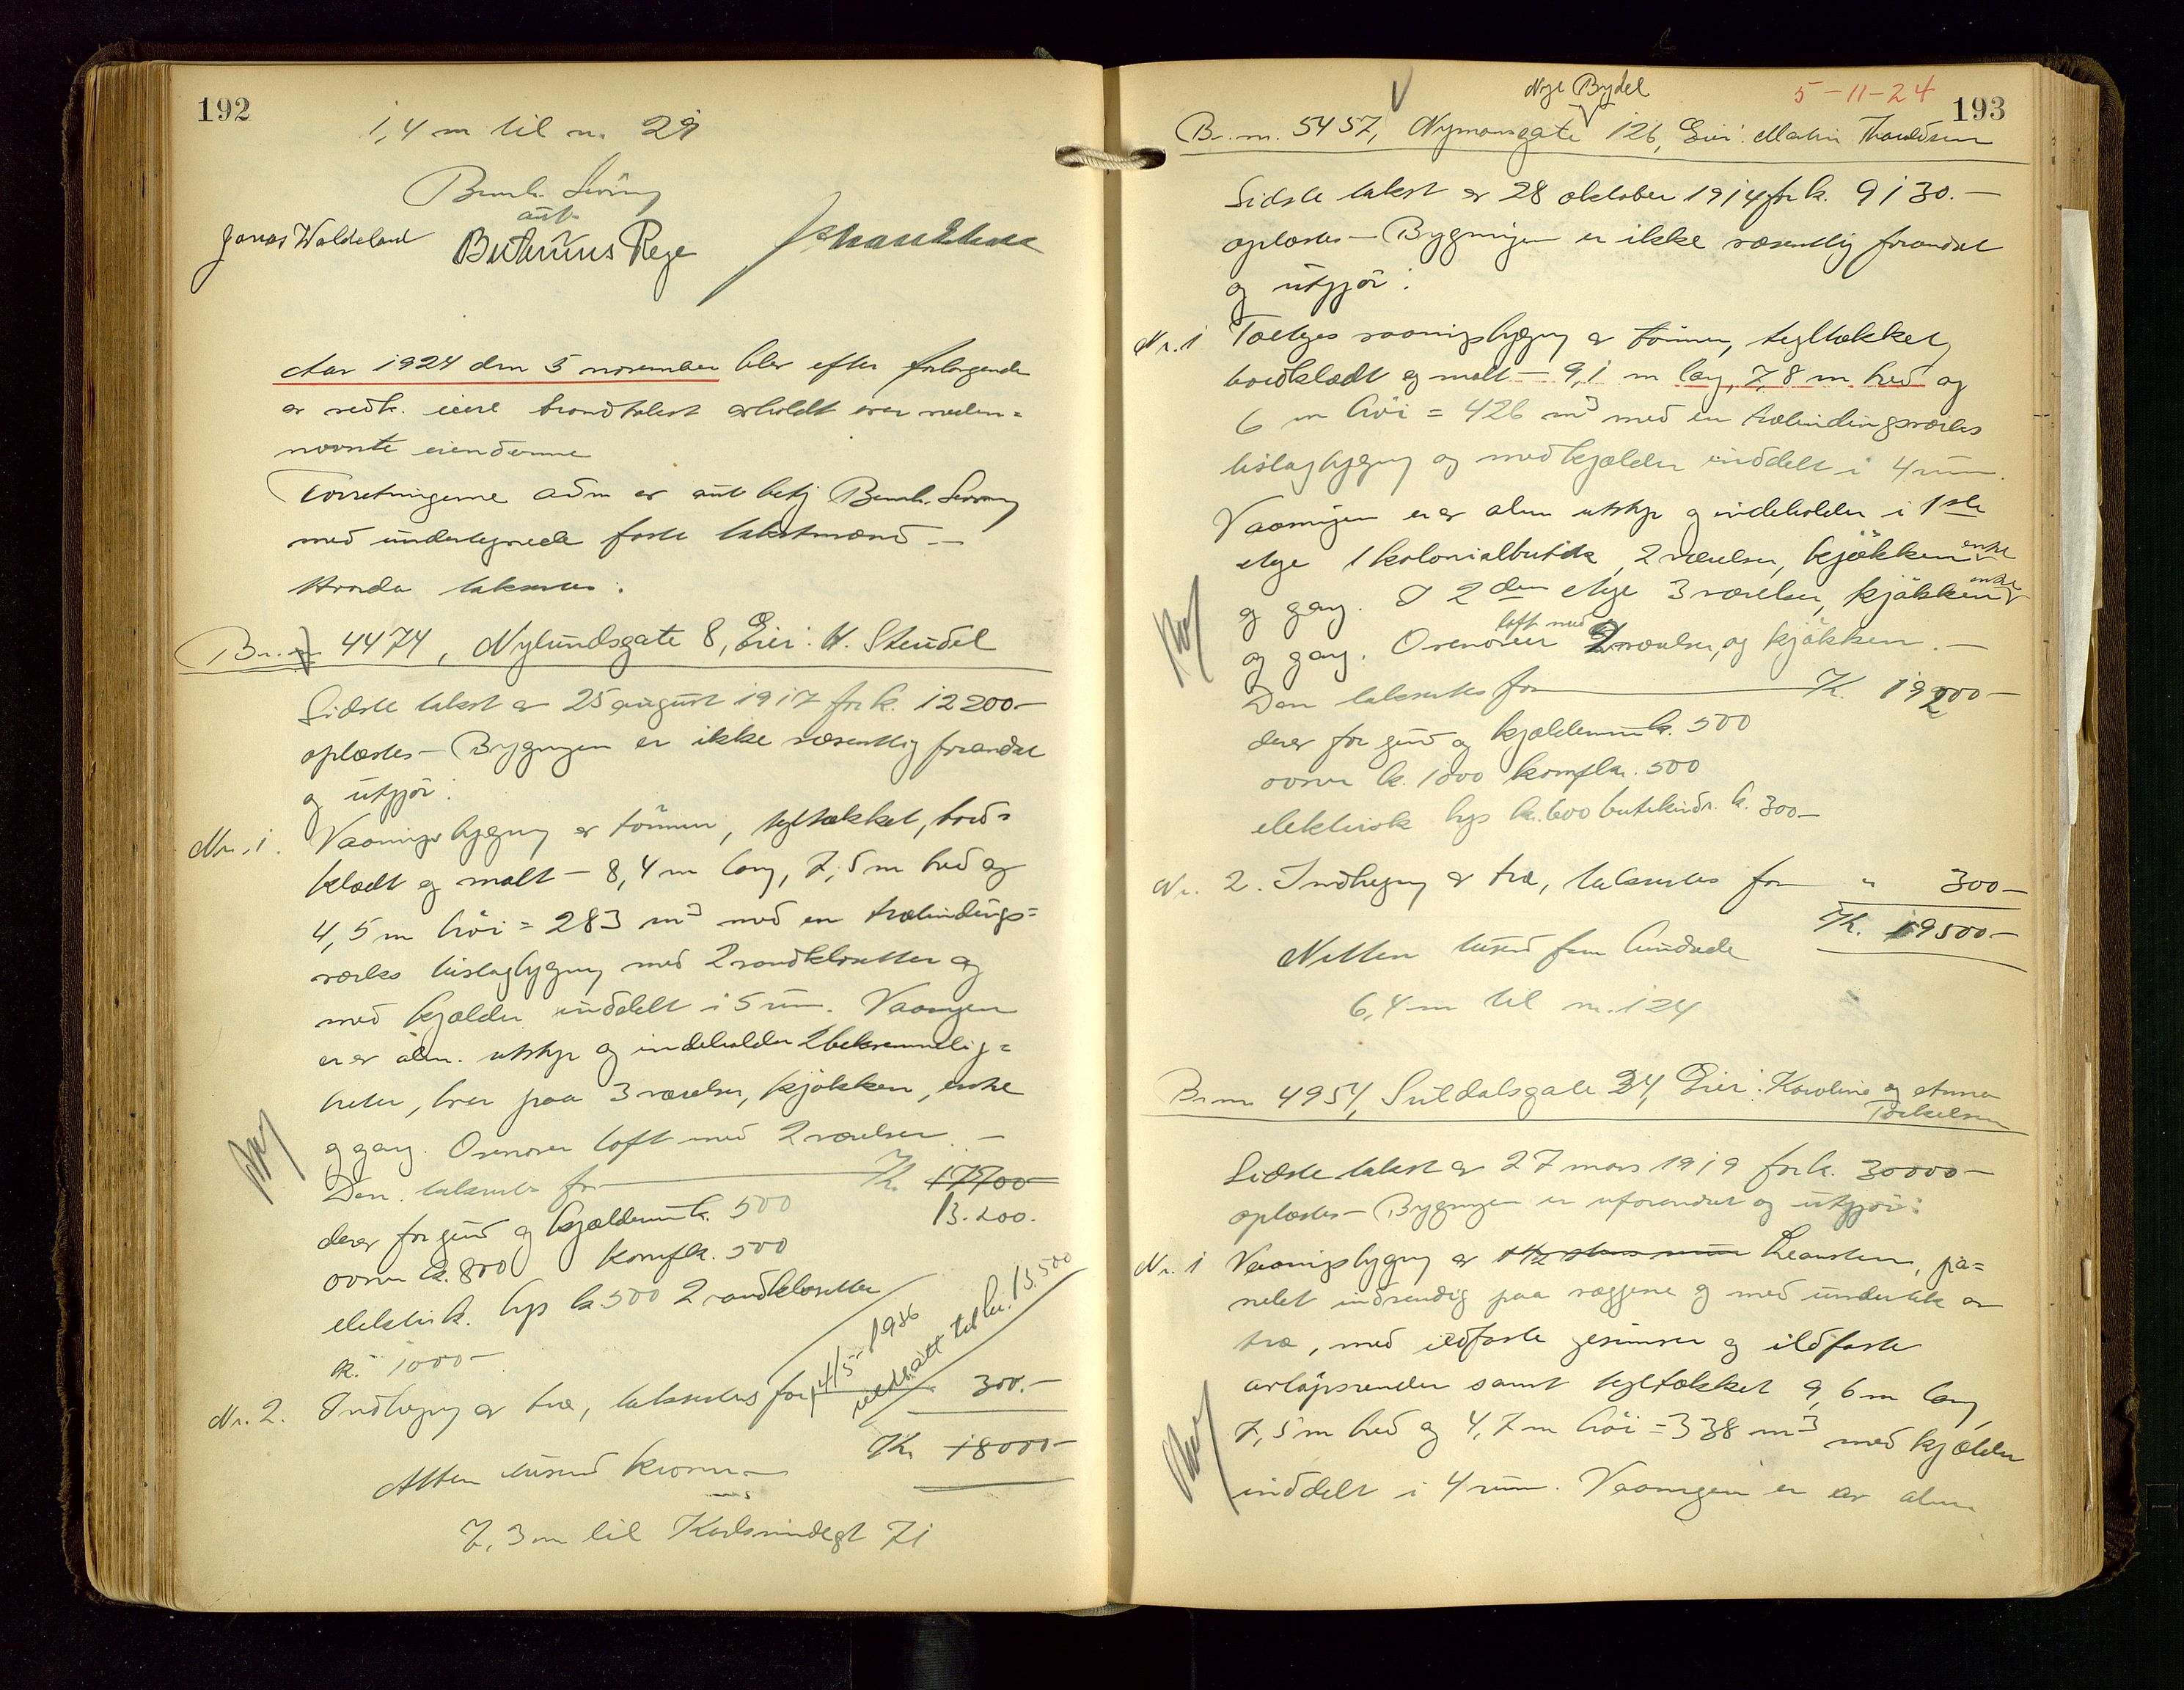 192
1,4 m til nr. 29
Jonas Waldeland
aut.
Bertinius Rege
Aar 1924 den 5 november blev efter forlangende
av vedk. eiere brandtakst avholdt over neden-
nævnte eiendomme
Forretningerne adm av aut betj Bernh.
med undertegnede faste takstmænd —
Hvorda taksertes:
Br.nr 4474, Nylundsgate 8, Eier: H. Steudel
Sidste takst av 25 august 1917 for k. 12200.—
oplæstes — Bygningen er ikke væsentlig forandret
og utgjør:
Nr. 1. Vaaningsbygning av tømmer, tegltækket, bord-
klædt og malt — 8,4 m lang, 7,5 m bred og
4,5 m høi = 283 m³ med en træbindings-
verks bislagbygning med 2 vandklosetter og
med kjælder inddelt i 5 rum. Vaaningen
er av alm. utstyr og indeholder 2 bekvemmelig-
heter, hver paa 3 værelser, kjøkken, entre
og gang. Ovenover loft med 2 værelser. —
Den takseres for Kr. 17700—
13.200.
derav for grund og kjældermur k. 500
ovner k. 800 komf k. 500
elektrisk. lys k 500 2 vandklosetter
k. 1000—
14/5 1936
nedsatt til kr. 13.500
Nr. 2. Indhegning av træ, takseres for 300.—
Kr. 18000—
Atten tusend kroner —
7,3 m til Karlsmindegt 71
193
5-11-24
Nye Bydel
Br.nr. 5457, Nymansgate 126, Eier: Martin Thorvaldsen
Sidste takst av 28 oktober 1914 for k. 9130.—
oplæstes — Bygningen er ikke væsentlig forandret
og utgjør:
Nr. 1 Toetages vaaningsbygning av tømmer, tegltækket,
bordklædt og malt — 9,1 m lang, 7,8 m bred og
6 m høi = 426 m³ med en træbindingsverks
bislagbygning og med kjælder inddelt i 4 rum.
Vaaningen er av alm utstyr og indeholder i 1ste
etage 1 kolonialbutik, 2 værelser, kjøkken entre
og gang. I 2den etage 3 værelser, kjøkken entre
og gang. Ovenover loft med 2 værelser, og kjøkken. —
Den takseres for Kr. 19200—
derav for grund og kjældermur k. 500
ovner k. 1000 komf kr. 500
elektrisk lys kr. 600 butikindr. k. 300—
Nr. 2. Indhegning av træ, takseres for " 300—
Kr. 19500—
Nitten tusend fem hundrede
6,4 m til nr. 124
Br nr 4954, Suldalsgate 34, Eier: Karoline og Anna
Torkelsen
Sidste takst av 27 mars 1919 for k. 30000—
oplæstes — Bygningen er uforandret og utgjør:
Nr. 1 Vaaningsbygning av Leansten, pa-
nelet indvendig paa væggene og med undertak av
træ, med ildfaste gesimser og ildfaste
avløpsrender samt tegltækket 9,6 m lang,
7,5 m bred og 4,7 m høi = 338 m³ med kjælder
inddelt i 4 rum. Vaaningen er av alm.